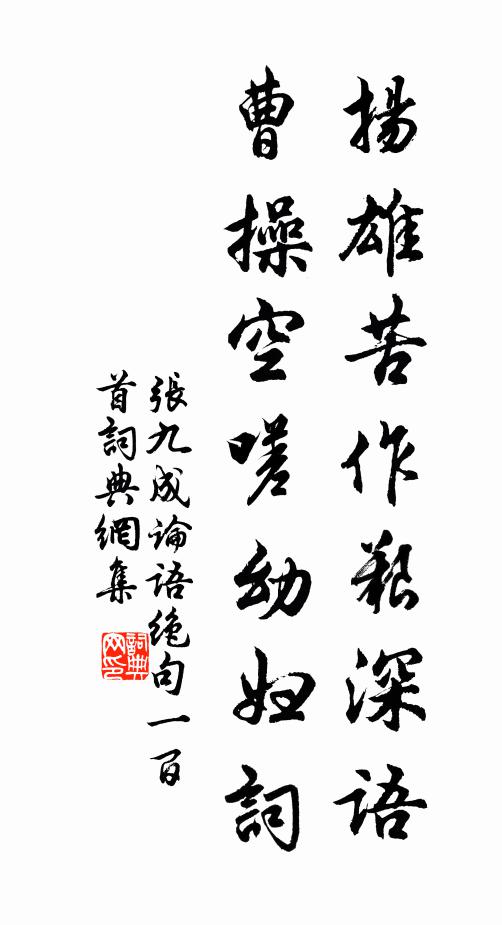 揚雄苦作艱深語
曹操空嗟幼婦詞
張九成論語絕句一百
首詞典網集
詞典
网印